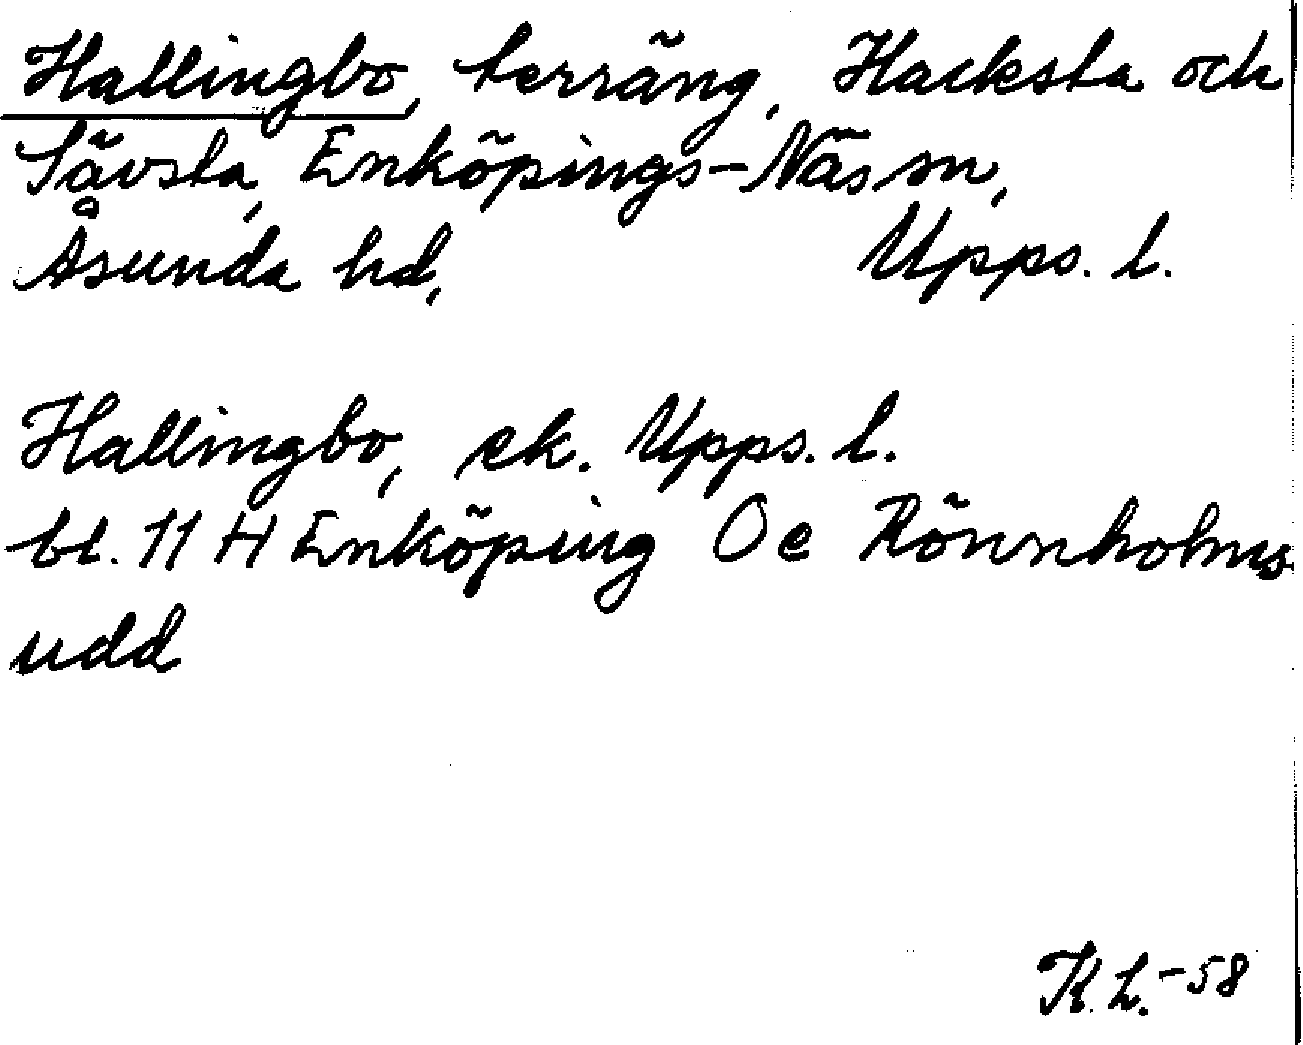 Hallingbo, terräng, Hacksta och
Sävsta, Enköpings-Näs sn,
Åsunda hd, Upps. l.
Hallingbo, ek. Upps. l.
bl. 11 H Enköping O e Rönnholms
udd
K. L. -58